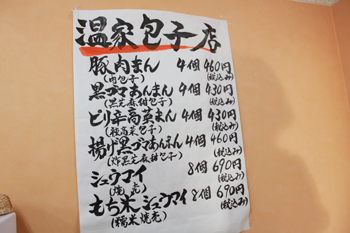 温家包子店
豚肉まん 4個 460円
(肉包子) (税込み)
黒ゴマあんまん 4個 430円
(黒芝麻甜包子) (税込み)
ピリ辛高菜まん 4個 430円
(辣高菜包子) (税込み)
揚げ黒ゴマあんまん 4個 460円
(炸黒芝麻甜包子) (税込み)
シュウマイ 8個 690円
(焼売) (税込み)
もち米シュウマイ 8個 690円
(糯米焼売) (税込み)